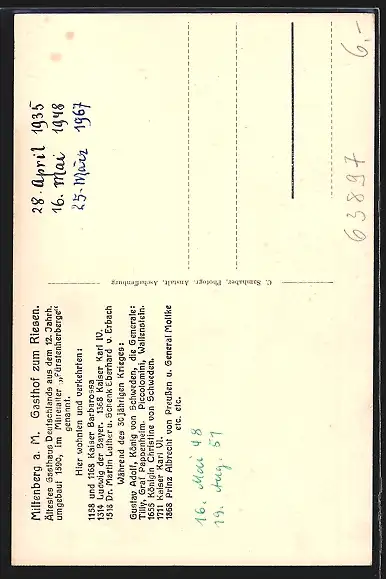 Miltenberg a. M. Gasthof zum Riesen.
Ältestes Gasthaus Deutschlands aus dem 12. Jahrh.
umgebaut 1590, im Mittelalter „Fürstenherberge“
genannt.
Hier wohnten und verkehrten:
1158 und 1168 Kaiser Barbarossa
1314 Ludwig der Bayer. 1368 Kaiser Karl IV.
1518 Dr. Martin Luther u. Schenk Eberhard v. Erbach
Während des 30jährigen Krieges:
Gustav Adolf, König von Schweden, die Generale:
Tilly, Graf Pappenheim, Piccolomini, Wallenstein.
1655 Königin Christine von Schweden.
1711 Kaiser Karl VI.
1868 Prinz Albrecht von Preußen u. General Moltke
etc. etc.
16. Mai 48
19. Aug. 51
C. Samhaber, Photogr. Anstalt, Aschaffenburg
28. April 1935
16. Mai 1948
25. März 1967
63897
6,-